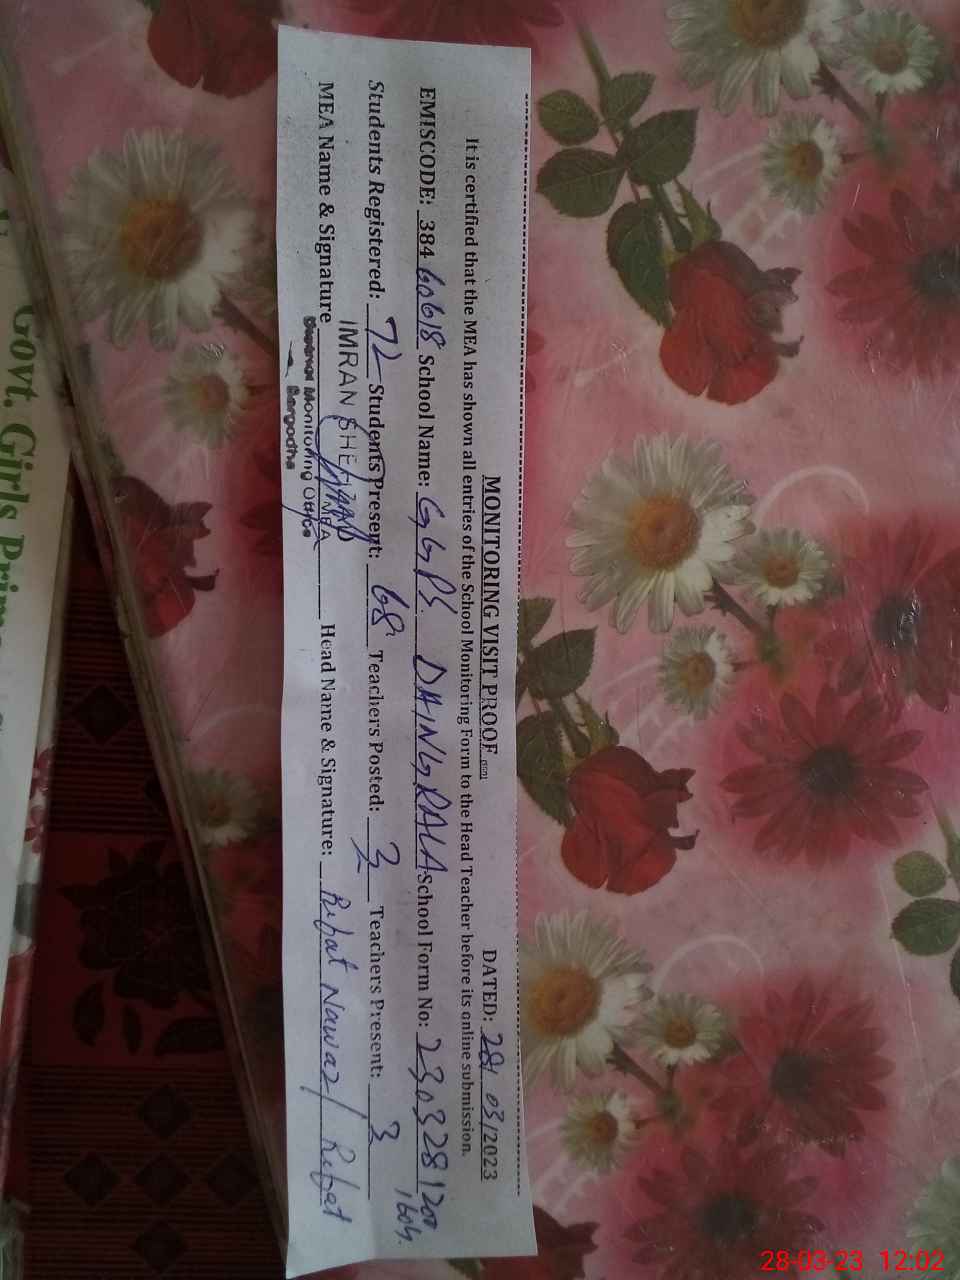 MONITORING VISIT PROOF DATED: 28/ 03/2023
It is certified that the MEA has shown all entries of the School Monitoring Form to the Head Teacher before its online submission.
EMISCODE: 384 60618 School Name: G.G.P.S. DAINGRALA School Form No: 230328120
1604.
Students Registered: 72 Students Present: 68 Teachers Posted: 3 Teachers Present: 3
MEA Name & Signature Head Name & Signature: Rifat Nawaz / Rifat
IMRAN MEA
Monitoring Office
Sargodha
Govt. Girls
28-03-23 12:02